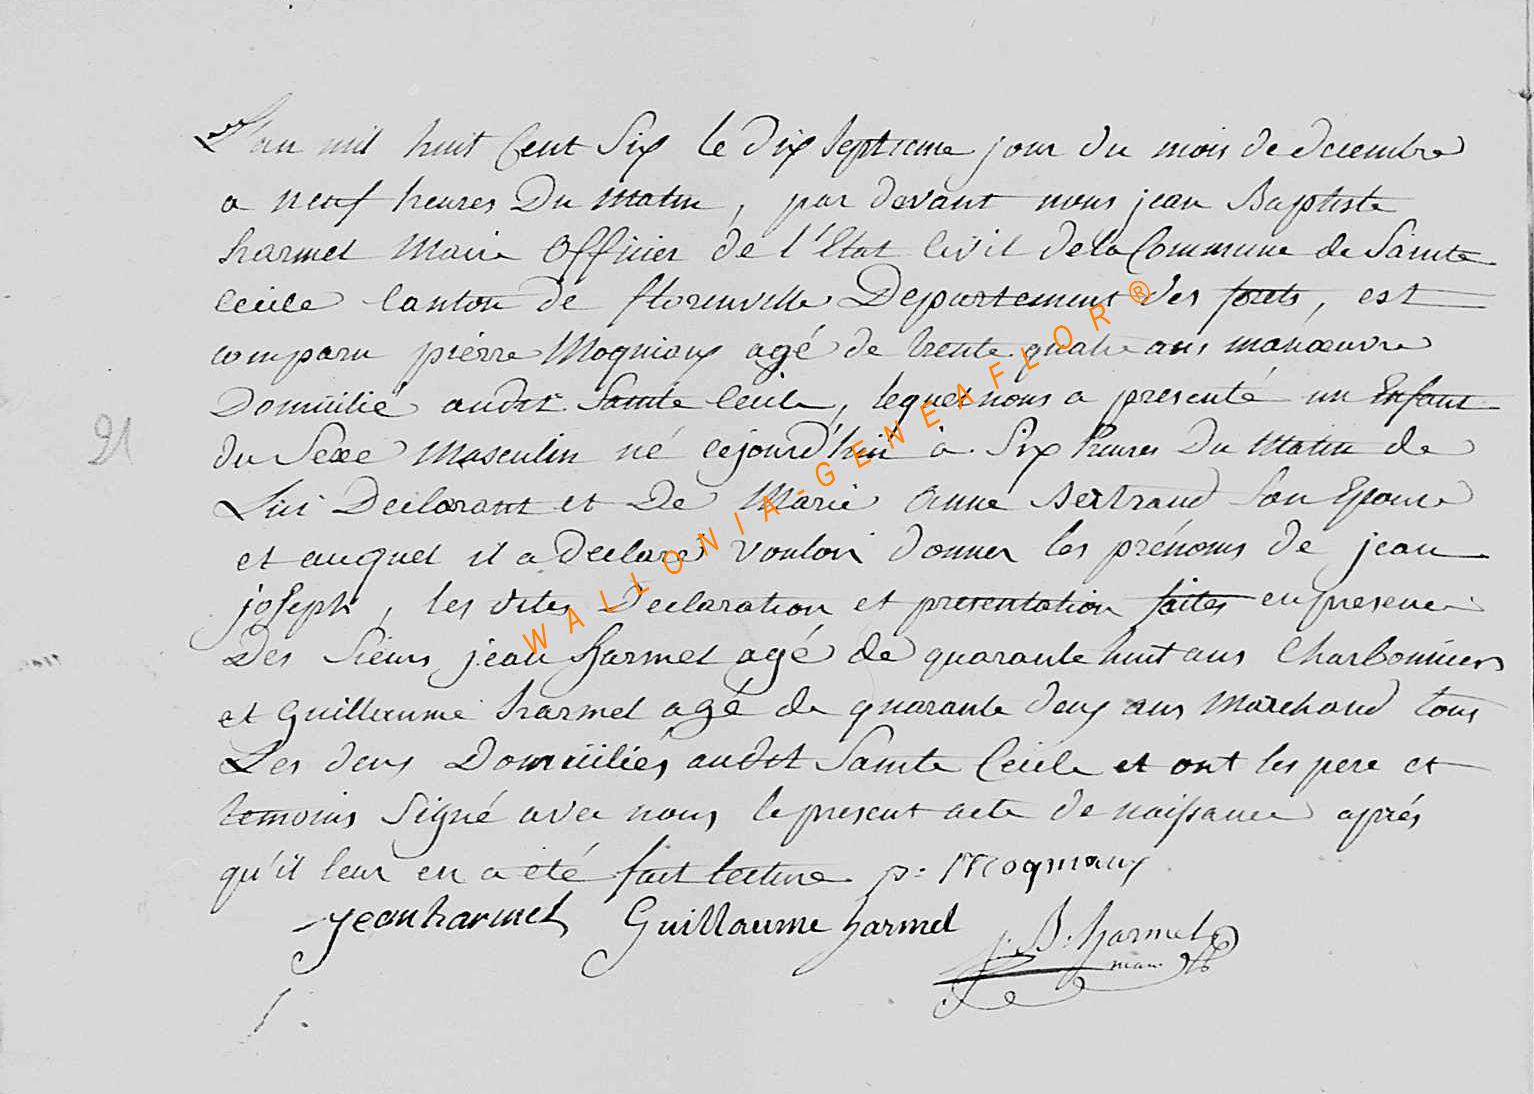 L'an mil huit Cent Six le dix Septieme jour du mois de decembre
a neuf heures Du Matin, par devant nous jean Baptiste
harmel Maire Officier de l'Etat Civil de la Commune de Sainte
Cecile Canton de florenville Departement des forets, est
comparu pierre Moqniaux agé de trente quatre ans manœuvre
Domicilié audit Sainte Cecile, lequel nous a presenté un Enfant
21
du Sexe Masculin né cejourd'hui à Six heures Du Matin de
Lui Declarant et De Marie Anne Bertrand Son Epouse
et auquel il a Declaré vouloir donner les prénoms de jean
joseph, les dites Declaration et presentation faites en presence
Des Sieurs jean harmel agé de quarante huit ans Charbonniers
et Guillaume harmel agé de quarante deux ans Marchand tous
Les deux Domiciliés audit Sainte Cecile et ont les pere et
temoins Signé avec nous le present acte de naissance après
qu'il leur en a été fait lecture p: Moqniaux
jean harmel Guillaume harmel
j. B. harmel
maire
WALLONIA-GENEAFLOR®